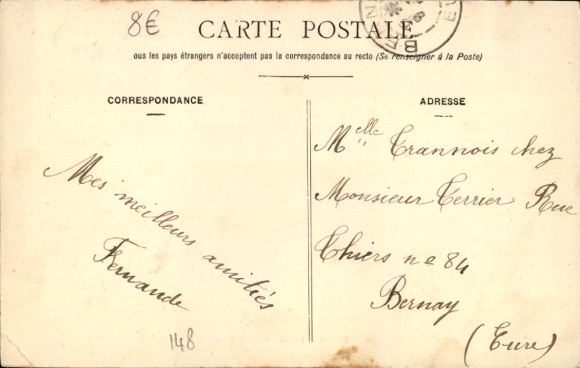 8€
CARTE POSTALE
ous les pays étrangers n'acceptent pas la correspondance au recto (Se renseigner à la Poste)
CORRESPONDANCE
Mes meilleurs amitiés
Fernande
148
ADRESSE
Melle Crannois chez
Monsieur Terrier Rue
Thiers no 84
Bernay
(Eure)